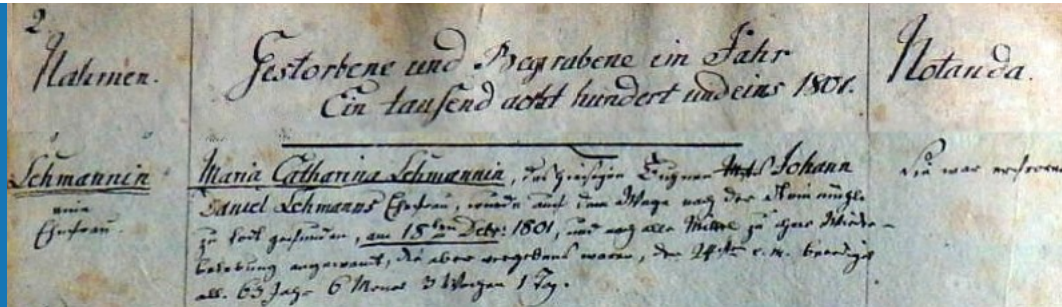 2.
Nahmen.
Gestorbene und Begrabene im Jahr
Ein tausend acht hundert und eins 1801.
Notanda.
Lehmannin
eine
Ehefrau.
Maria Catharina Lehmannin, des hiesigen Johann
Daniel Lehmanns Ehefrau, wurde auf dem Wege nach der
zu todt gefunden, am 18ten Debr: 1801, und alle Mittel zu ihrer Wieder-
belebung angewant, die aber vergebens waren, den 24ten e.m. beerdigt
alt. 63 Jahr 6 Monat 3 Wochen 1 Tag.
Sie war erfroren